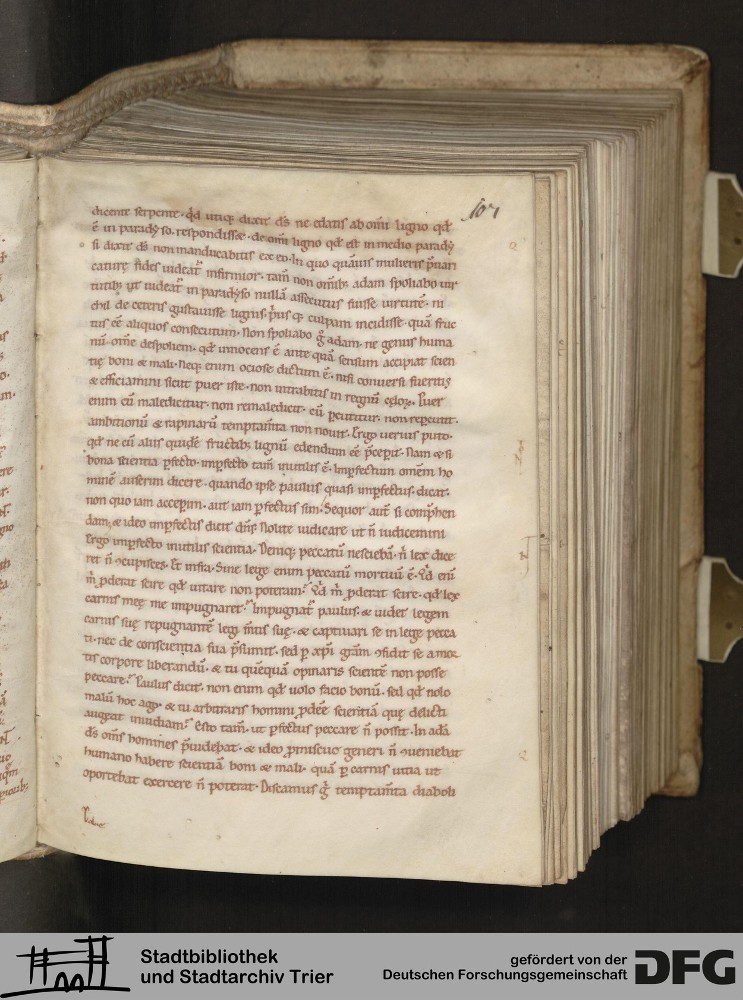 107
dicente serpente· qd̄ utiq; dixit d̄s ne edatis ab om̄i ligno qd̄
ē in paradyso. respondisse· de om̄i ligno qd̄ est in medio parady
si dixit d̄s non manducabitis ex eo· In quo quāuis mulieris p̄uari
catricę fides uideat̄ infirmior· tam̄ non om̄ib; adam spoliabo uir
tutib; ut uideat̄ in paradyso nullā assecutus fuisse uirtutē· ni
chil de ceteris gustauisse lignis· p̄us q; culpam incidisse· quā fruc
tus eē aliquos consecutum· Non spoliabo ḡ adam· ne genus huma
nū om̄e despoliem· qd̄ innocens ē ante quā sensum accipiat scien
tię boni & mali· Neq; enim ociose dictum ē· nisi conuersi fueritis
& efficiamini sicut puer iste· non intrabitis in regnū cęloꝝ· Puer
enim cū maledicitur· non remaledicit· cū p̄cutitur· non rep̄cutit·
ambitionū & rapinarū temptam̄ta non nouit· Ergo uerius puto·
qd̄ ne cū aliis quidē fructib; lignū edendum eē p̄cepit· Nam & si
bona scientia p̄fecto· imp̄fecto tam̄ inutilis ē· Imp̄fectum om̄em ho
minē ausērim dicere· quando ipse paulus quasi imp̄fectus dicat·
non quo iam acceperim· aut iam p̄fectus sim· Sequor aut̄ si comp̄hen
dam· & ideo imp̄fectis dicit dn̄s· Nolite iudicare ut n̄ iudicemini
Ergo imp̄fecto inutilis scientia· Deniq; peccatū nesciebā· n̄ lex dice
ret n̄ ↄcupisces· Et infra· Sine lege enim peccatū mortuū ē· Qd̄ enī
m̄ p̄derat scire qd̄ uitare non poteram? Qd̄ m̄ p̄derat scire· qd̄ lex
carnis meę me impugnaret? Impugnat̄ paulus· & uidet legem
carnis suę repugnantē legi m̄tis suę· & captiuari se in lege pecca
ti· nec de conscientia sua p̄sumit· sed p̄ xp̄i grām ↄfidit se a mor
tis corpore liberandū· & tu quēquā opinaris scientē non posse
peccare? Paulus dicit· non enim qd̄ uolo facio bonū· sed qd̄ nolo
malū hoc ago· & tu arbitraris homini p̄deē scientiā quę delicti
augeat inuidiam? Esto tam̄· ut p̄fectus peccare n̄ possit· In adā
d̄s om̄s homines p̄uidebat· & ideo p̄miscuo generi n̄ ↄueniebat
humano habere scientiā boni & mali· quā p̄ carnis uitia ut
oportebat exercere n̄ poterat· Discamus ḡ temptam̄ta diaboli
Stadtbibliothek
und Stadtarchiv Trier
gefördert von der
Deutschen Forschungsgemeinschaft
DFG